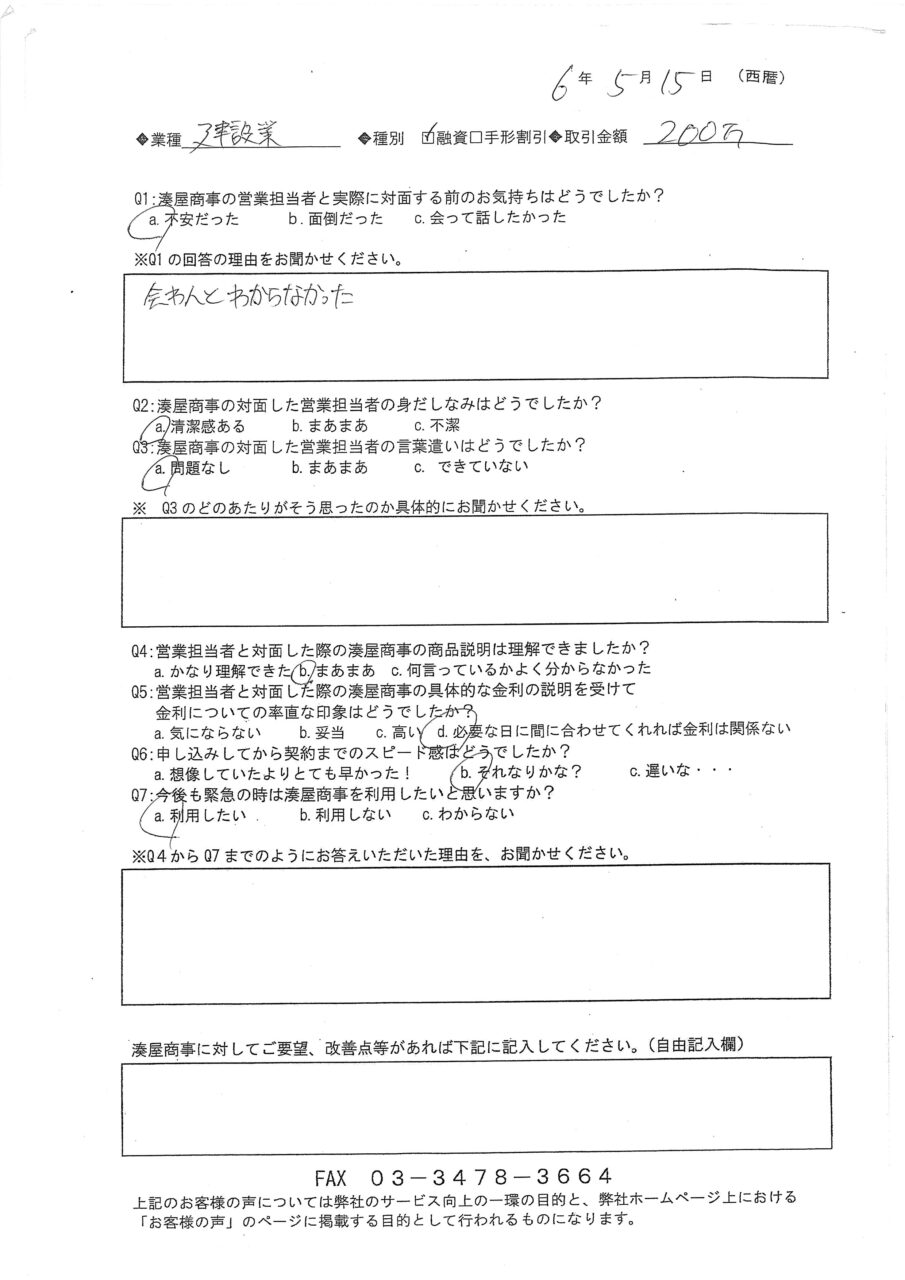 6年 5月15日 （西暦）
◆業種 建設業 ◆種別 ☑融資□手形割引◆取引金額 200万
Q1:湊屋商事の営業担当者と実際に対面する前のお気持ちはどうでしたか？
a.不安だった b.面倒だった c.会って話したかった
※Q1の回答の理由をお聞かせください。
会わんとわからなかった
Q2:湊屋商事の対面した営業担当者の身だしなみはどうでしたか？
a.清潔感ある b.まあまあ c.不潔
Q3:湊屋商事の対面した営業担当者の言葉遣いはどうでしたか？
a.問題なし b.まあまあ c. できていない
※ Q3のどのあたりがそう思ったのか具体的にお聞かせください。
Q4:営業担当者と対面した際の湊屋商事の商品説明は理解できましたか？
a.かなり理解できた b.まあまあ c.何言っているかよく分からなかった
Q5:営業担当者と対面した際の湊屋商事の具体的な金利の説明を受けて
金利についての率直な印象はどうでしたか？
a.気にならない b.妥当 c.高い d.必要な日に間に合わせてくれれば金利は関係ない
Q6:申し込みしてから契約までのスピード感はどうでしたか？
a.想像していたよりとても早かった！ b.それなりかな？ c.遅いな・・・
Q7:今後も緊急の時は湊屋商事を利用したいと思いますか？
a.利用したい b.利用しない c.わからない
※Q4からQ7までのようにお答えいただいた理由を、お聞かせください。
湊屋商事に対してご要望、改善点等があれば下記に記入してください。（自由記入欄）
FAX 03－3478－3664
上記のお客様の声については弊社のサービス向上の一環の目的と、弊社ホームページ上における
「お客様の声」のページに掲載する目的として行われるものになります。